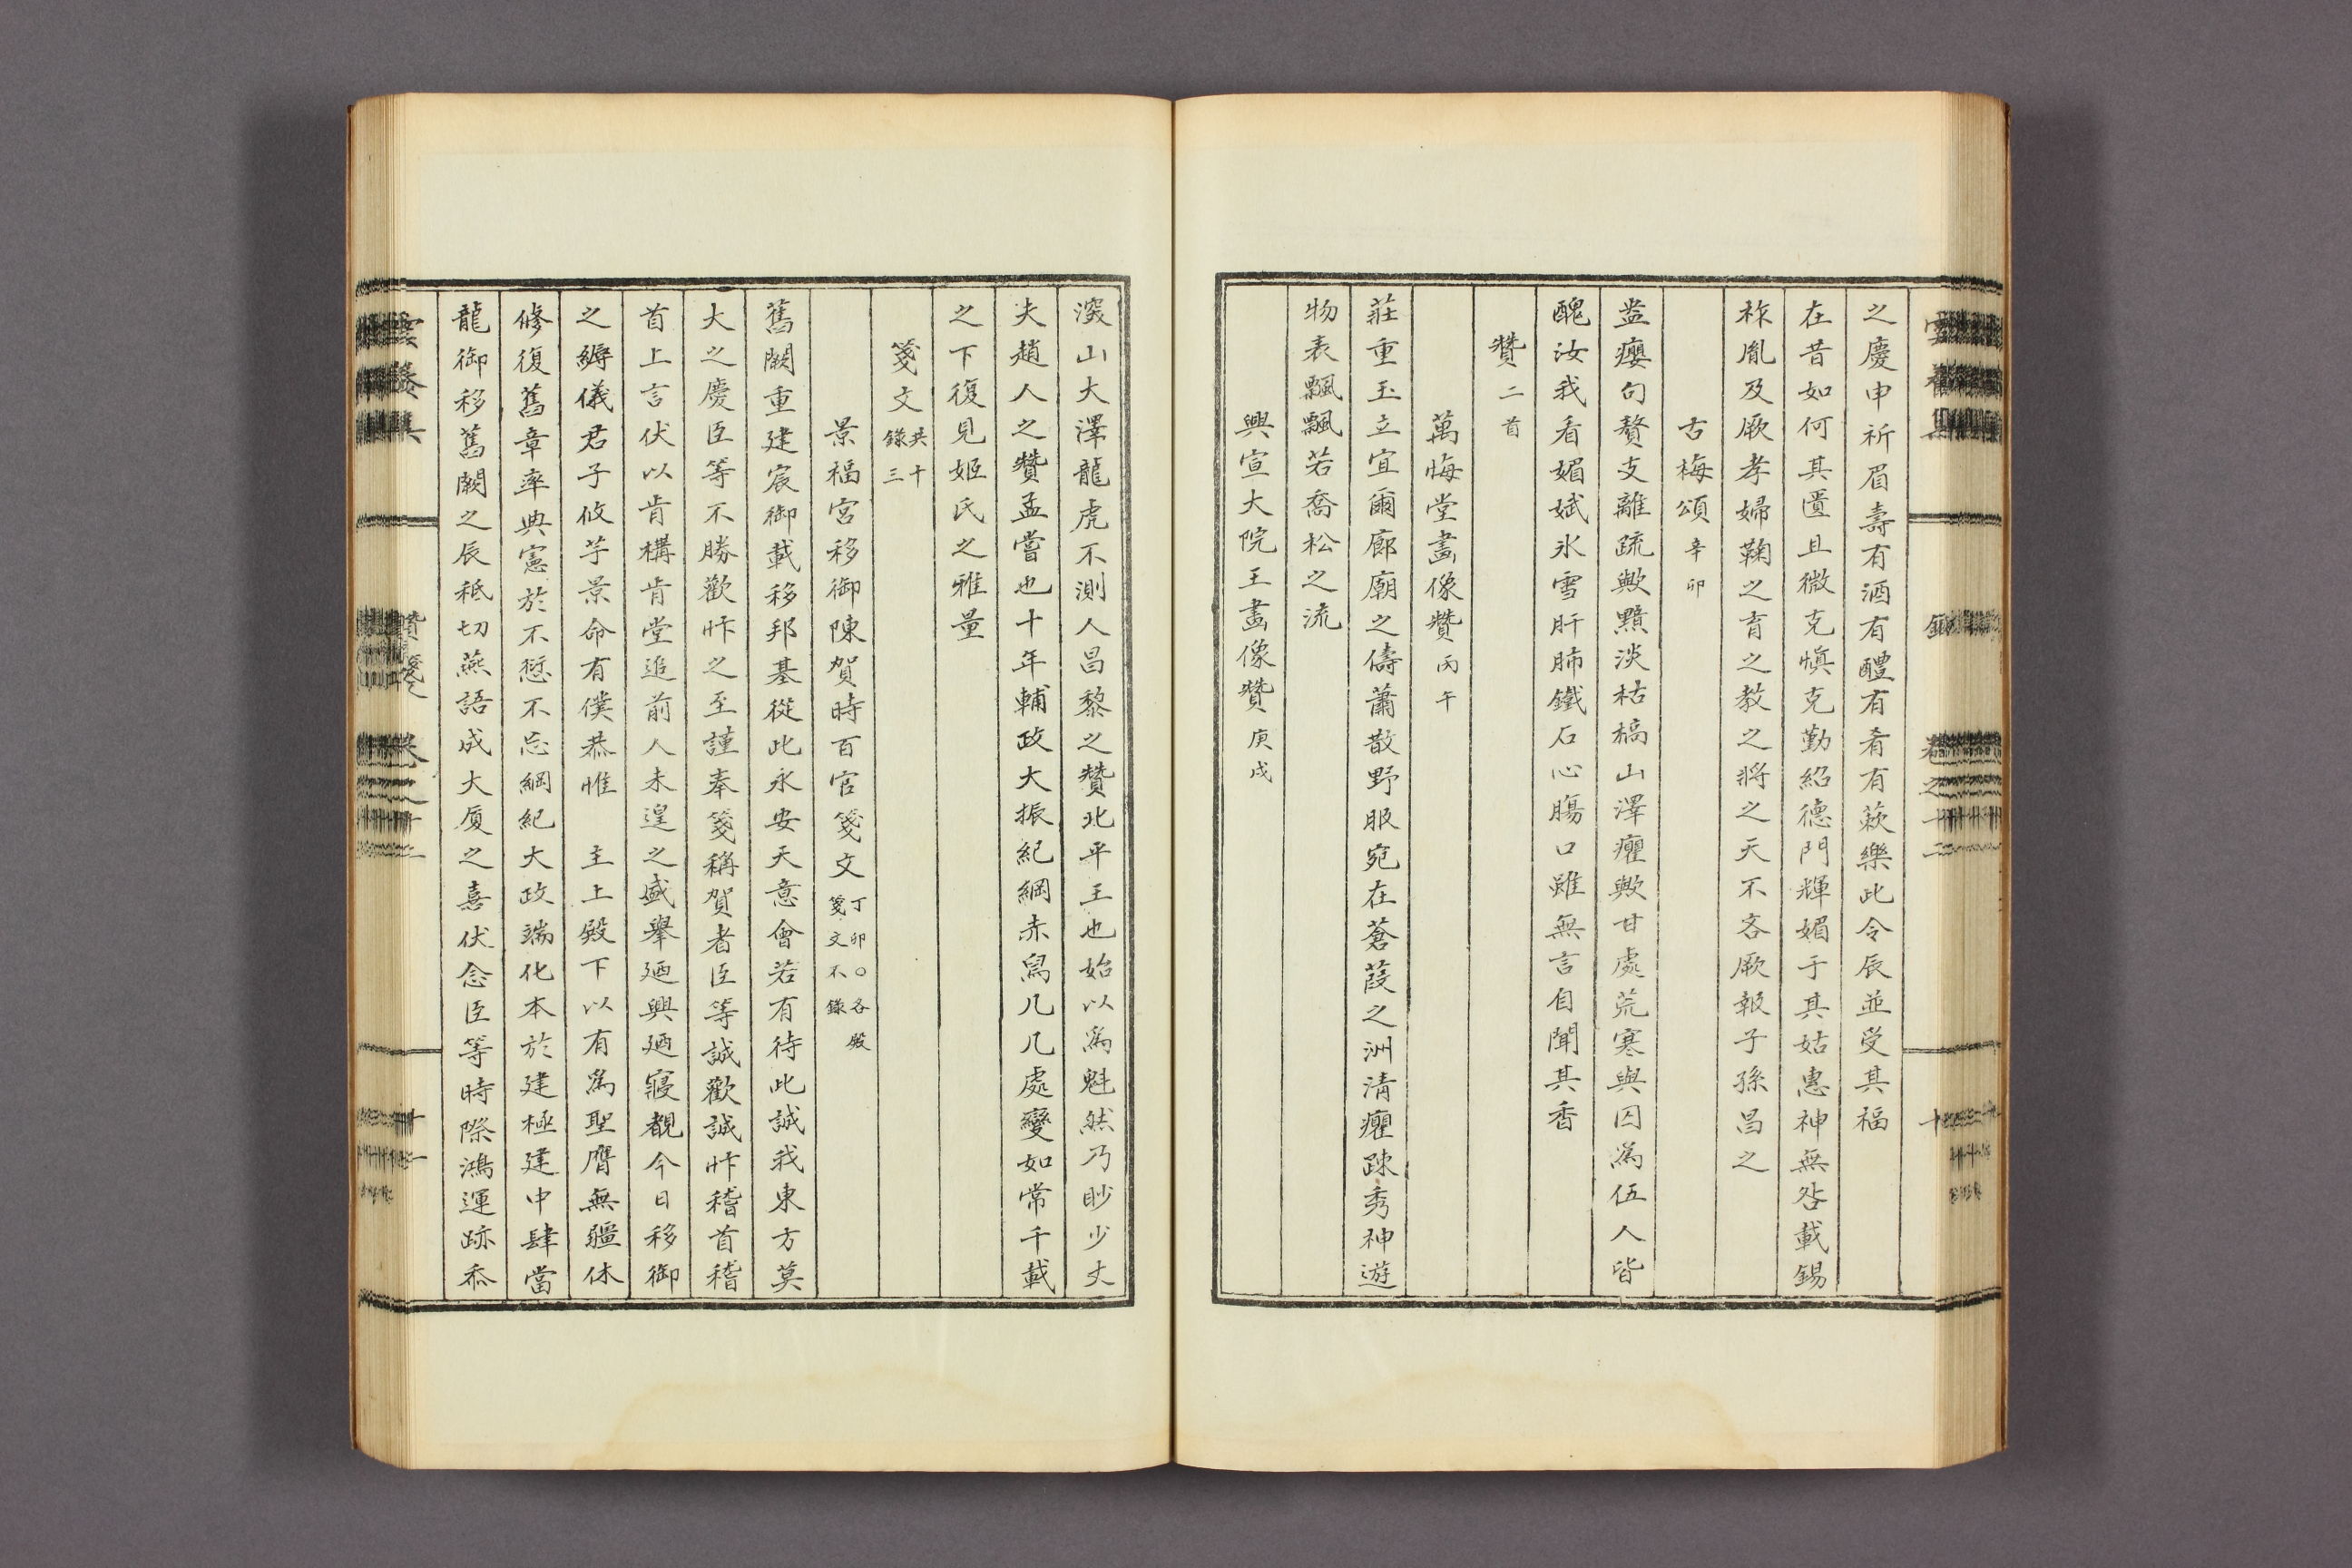 之慶申祈眉壽有酒有醴有肴有蔌樂此令辰並受其福
在昔如何其匱且微克愼克勤紹德門輝媚于其姑惠神無咎載錫
祚胤及厥孝婦鞠之育之敎之將之天不吝厥報子孫昌之
古梅頌 辛卯
盎癭句贅支離疏歟黯淡枯槁山澤癯歟甘處荒寒與囚爲伍人皆
醜汝我看媚娬氷雪肝肺鐵石心腸口雖無言自聞其香
贊 二首
萬悔堂畵像贊 丙午
莊重玉立宜爾廊廟之儔蕭散野服宛在蒼葭之洲淸癯踈秀神遊
物表飄飄若喬松之流
興宣大院王畵像贊 庚戌
深山大澤龍虎不測人昌黎之贊北平王也始以爲魁然乃眇少丈
夫趙人之贊孟嘗也十年輔政大振紀綱赤舃几几處變如常千載
之下復見姬氏之雅量
箋文 共十錄三
景福宮移御陳賀時百官箋文 丁卯○各殿箋文不錄
舊闕重建宸御載移邦基從此永安天意會若有待此誠我東方莫
大之慶臣等不勝歡忭之至謹奉箋稱賀者臣等誠歡誠忭稽首稽
首上言伏以肯構肯堂追前人未遑之盛擧廼興廼寢覩今日移御
之縟儀君子攸芋景命有僕恭惟 主上殿下以有爲聖膺無疆休
修復舊章率典憲於不愆不忘綱紀大政端化本於建極建中肆當
龍御移舊闕之辰秪切燕語成大厦之喜伏念臣等時際鴻運跡忝